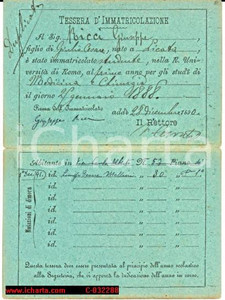 Duplicato
TESSERA D'IMMATRICOLAZIONE
Al Sig. Ricci Giuseppe
figlio di Giulio Cesare, nato a Licata
è stato immatricolato studente nella R. Uni-
versità di Roma, al primo anno per gli studi di
Medicina e Chirurgia
il giorno 2 gennaio 1888.
Firma dell'Immatricolato
addì 28 Dicembre 1890
Giuseppe Ricci
Il Rettore
Abitante in N. 52 Piano
Mutazioni di dimora
id.
id.
id.
id.
id.
id.
id.
Questa tessera deve essere presentata al principio dell'anno scolastico
alla Segreteria, che vi apporrà la indicazione dell'anno in corso.
icharta
www.icharta.com
C-032280